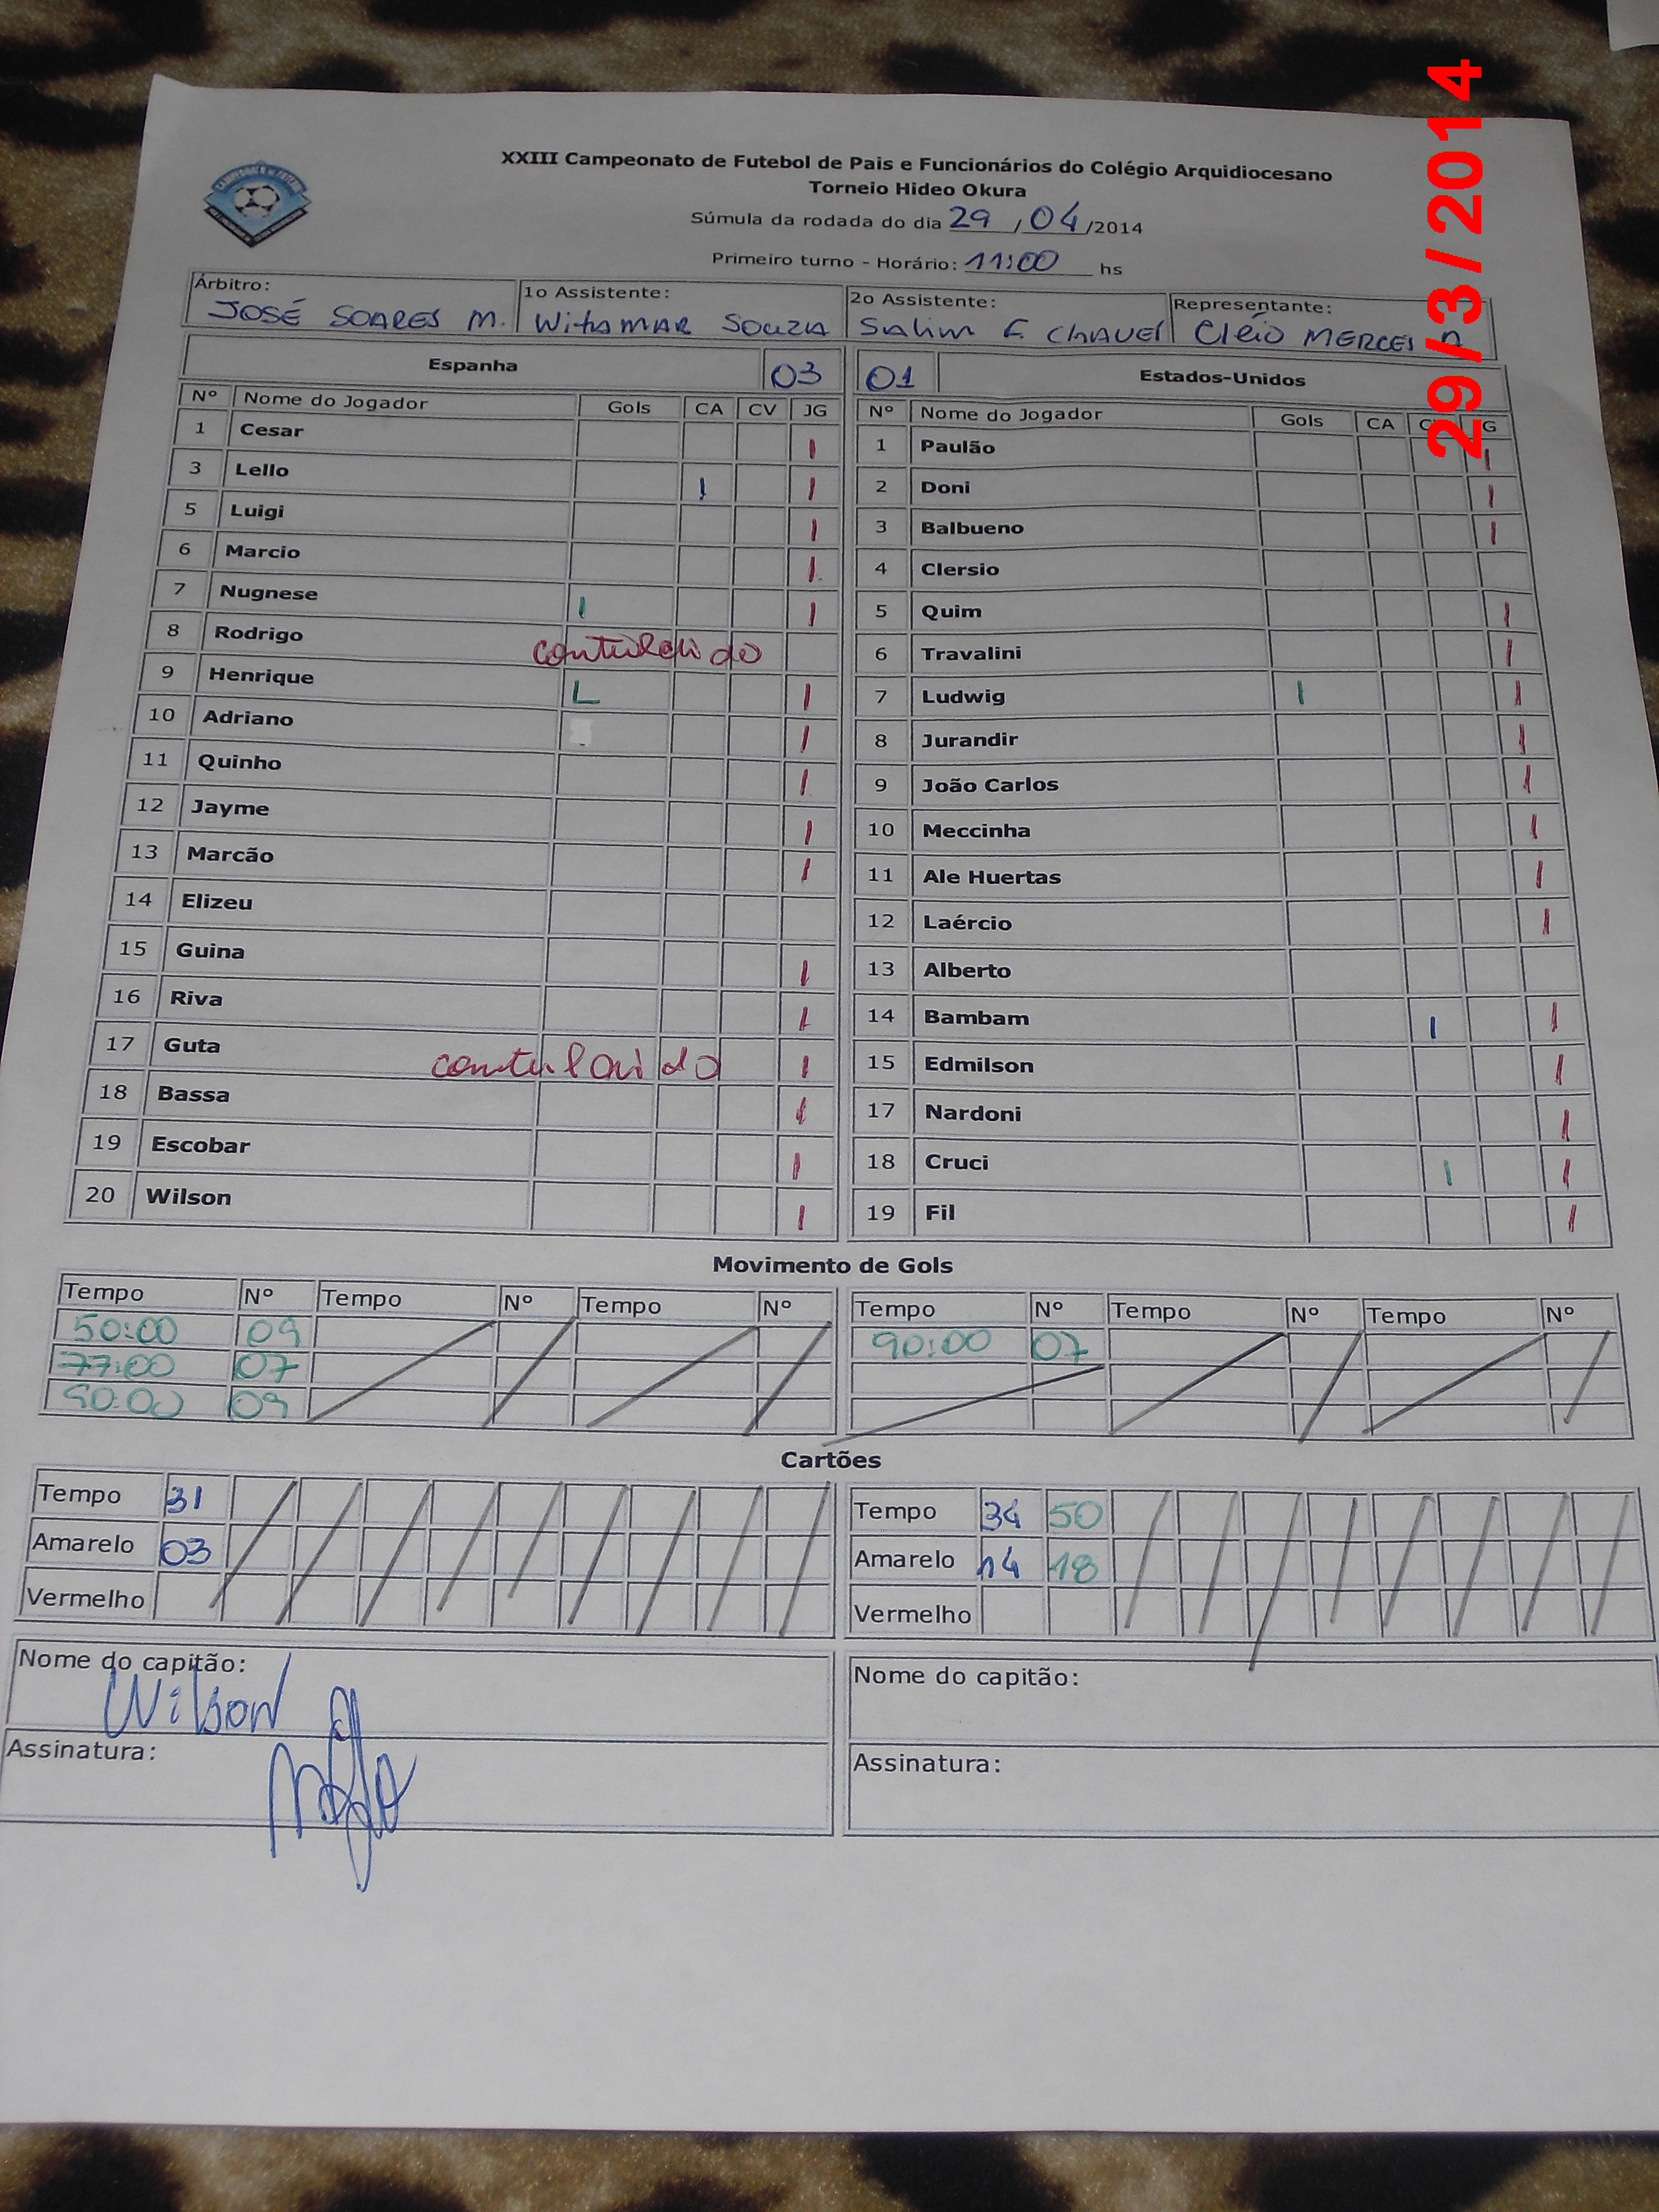 29/3/2014
XXIII Campeonato de Futebol de Pais e Funcionários do Colégio Arquidiocesano
Torneio Hideo Okura
Súmula da rodada do dia 29 / 04 /2014
Primeiro turno - Horário: 11:00 hs
Árbitro: 1o Assistente: 2o Assistente: Representante:
JOSÉ SOARES M. WitAMAR SOUZA Salim F. CHAVES Cléio MERCES
Espanha 03 01 Estados-Unidos
Nº Nome do Jogador Gols CA CV JG Nº Nome do Jogador Gols CA
1 Cesar I 1 Paulão I
3 Lello I I 2 Doni I
5 Luigi I 3 Balbueno I
6 Marcio I 4 Clersio
7 Nugnese I I 5 Quim I
8 Rodrigo 6 Travalini I
9 Henrique L I 7 Ludwig I I
10 Adriano I 8 Jurandir I
11 Quinho I 9 João Carlos I
12 Jayme I 10 Meccinha I
13 Marcão I 11 Ale Huertas I
14 Elizeu 12 Laércio I
15 Guina I 13 Alberto
16 Riva I 14 Bambam I I
17 Guta I 15 Edmilson I
18 Bassa I 17 Nardoni I
19 Escobar I 18 Cruci I I
20 Wilson I 19 Fil I
Movimento de Gols
Tempo Nº Tempo Nº Tempo Nº Tempo Nº Tempo Nº Tempo Nº
50:00 09 90:00 07
77:00 07
90:00 09
Cartões
Tempo 31 Tempo 34 50
Amarelo 03 Amarelo 14 18
Vermelho Vermelho
Nome do capitão: Nome do capitão:
Wilson
Assinatura: Assinatura: